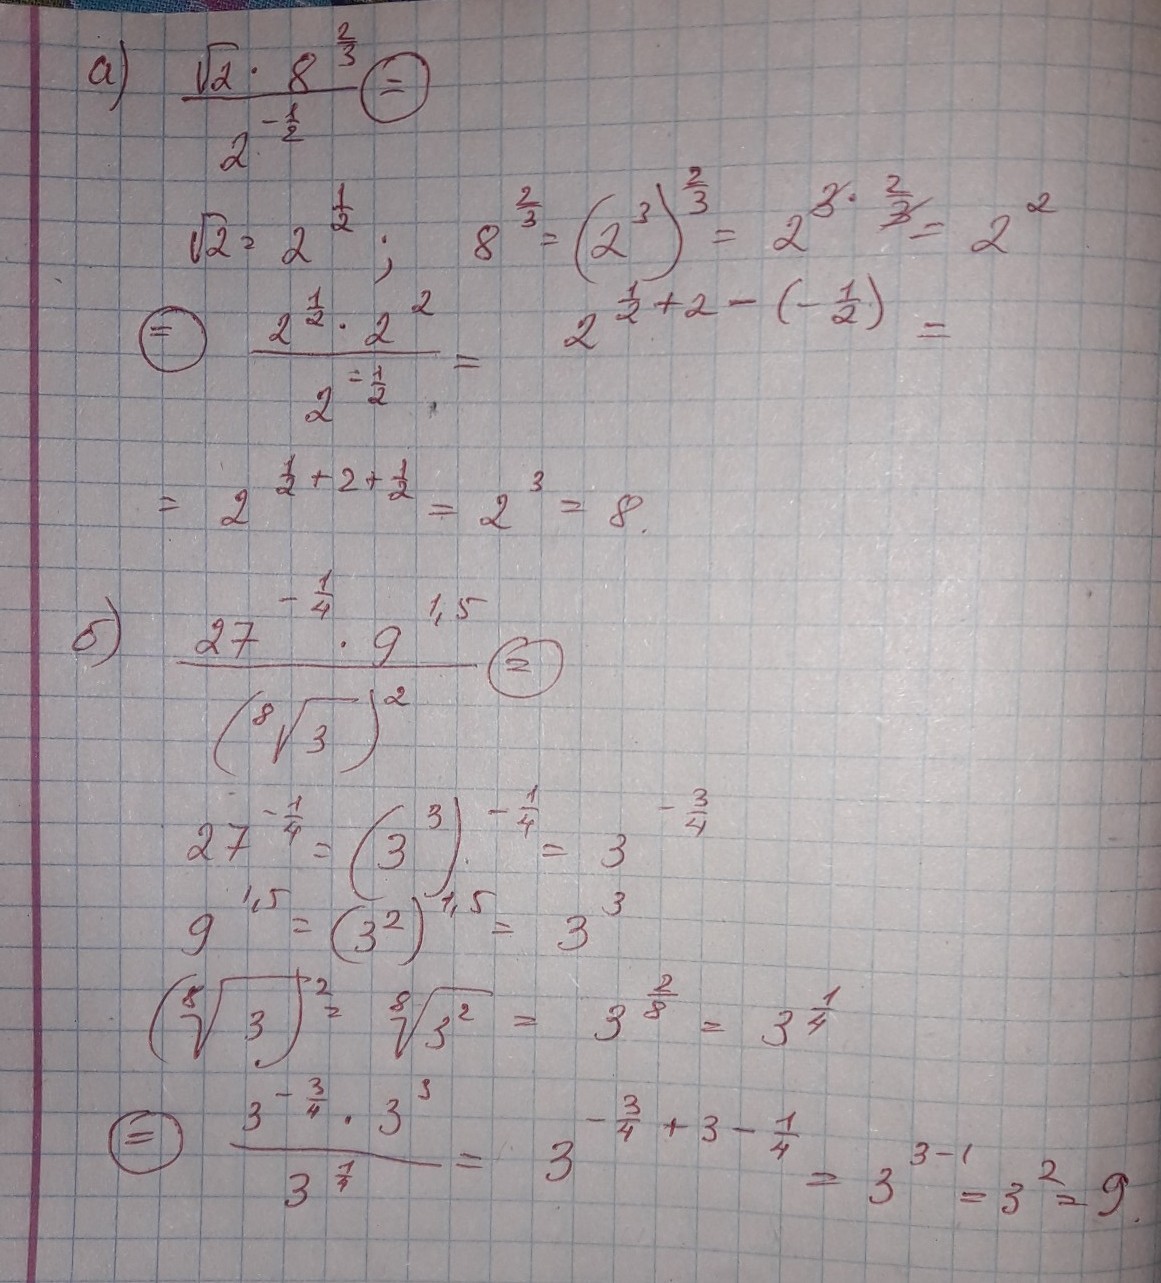 а) (√2 · 8^(2/3)) / 2^(-1/2) ⊜
√2 = 2^(1/2) ; 8^(2/3) = (2^3)^(2/3) = 2^(3 · 2/3) = 2^2
⊜ (2^(1/2) · 2^2) / 2^(-1/2) = 2^(1/2 + 2 - (-1/2)) =
= 2^(1/2 + 2 + 1/2) = 2^3 = 8.
б) (27^(-1/4) · 9^(1,5)) / (⁸√3)^2 ⊜
27^(-1/4) = (3^3)^(-1/4) = 3^(-3/4)
9^(1,5) = (3^2)^(1,5) = 3^3
(⁸√3)^2 = ⁸√(3^2) = 3^(2/8) = 3^(1/4)
⊜ (3^(-3/4) · 3^3) / 3^(1/4) = 3^(-3/4 + 3 - 1/4) = 3^(3-1) = 3^2 = 9.